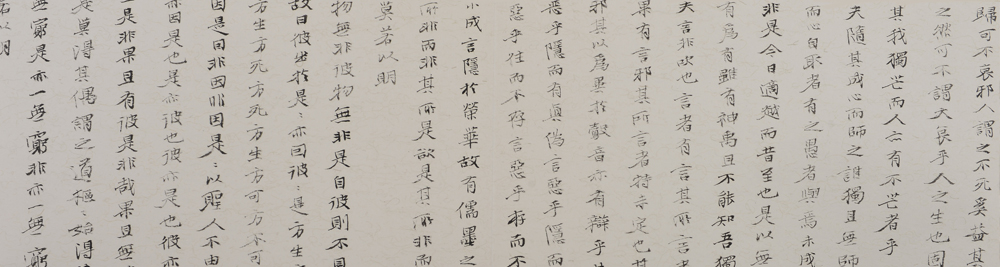 歸可不哀邪人謂之不死奚益其
之然可不謂大哀乎人之生也固
其我獨芒而人亦有不芒者乎
夫隨其成心而師之誰獨且無師
而心自取者有之愚者與焉未成
非是今日適越而昔至也是以無
有爲有雖有神禹且不能知吾獨
夫言非吹也言者有言其所言
果有言邪其所言者特未定也
邪其以爲異於鷇音亦有辯乎
惡乎隱而有真偽言惡乎隱而
惡乎往而不存言惡乎存而不
小成言隱於榮華故有儒墨之
所非而非其所是欲是其所非而
莫若以明
物無非彼物無非是自彼則不見
故曰彼出於是:亦因彼:是方生
方生方死方死方生方可方不可
因是因非因非因是:以聖人不由
亦因是也是亦彼也彼亦是也彼亦
一是非果且有彼是非哉果且無
是莫得其偶謂之道樞:始得
無窮是亦一無窮非亦一無窮
若以明